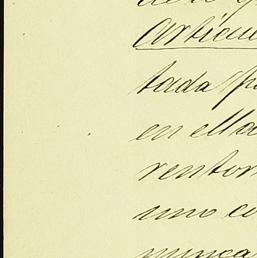 Articu
tada p
en ella
rentor
uno co
minca